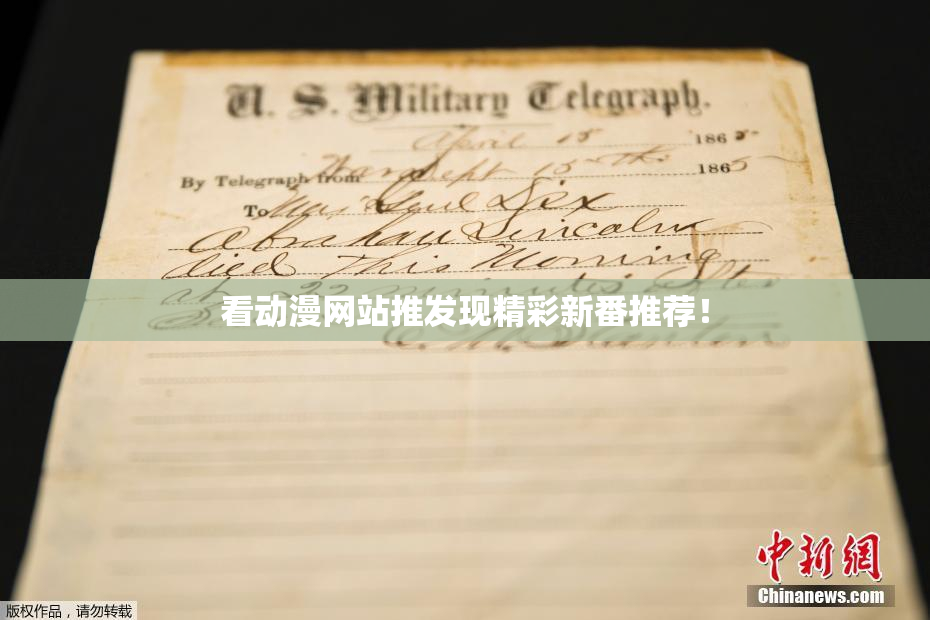 U. S. Military Telegraph.
April 15 1865
By Telegraph from War Dept 15th 1865
To Maj Genl Dix
Abraham Lincoln
died This Morning
at 22 minutes after
看动漫网站推发现精彩新番推荐！
Stanton
中新网
Chinanews.com
版权作品，请勿转载